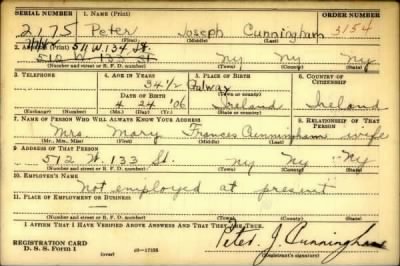 SERIAL NUMBER 1. NAME (Print) ORDER NUMBER
2175 Peter Joseph Cunningham 3154
(First) (Middle) (Last)
511 W. 134 St.
2. ADDRESS (Print)
512 W. 133 St NY NY NY
(Number and street or R. F. D. number) (Town) (County) (State)
3. TELEPHONE 4. AGE IN YEARS 5. PLACE OF BIRTH 6. COUNTRY OF CITIZENSHIP
34½ Galway
DATE OF BIRTH (Town or county)
4 24 '06 Ireland Ireland
(Exchange) (Number) (Mo.) (Day) (Yr.) (State or country)
7. NAME OF PERSON WHO WILL ALWAYS KNOW YOUR ADDRESS 8. RELATIONSHIP OF THAT PERSON
Mrs. Mary Frances Cunningham wife
(Mr., Mrs., Miss) (First) (Middle) (Last)
9. ADDRESS OF THAT PERSON
512 W. 133 St. NY NY NY
(Number and street or R. F. D. number) (Town) (County) (State)
10. EMPLOYER'S NAME
Not employed at present
11. PLACE OF EMPLOYMENT OR BUSINESS
(Number and street or R. F. D. number) (Town) (County) (State)
I AFFIRM THAT I HAVE VERIFIED ABOVE ANSWERS AND THAT THEY ARE TRUE.
REGISTRATION CARD
D. S. S. Form 1 (over) Peter J. Cunningham
(Registrant's signature)